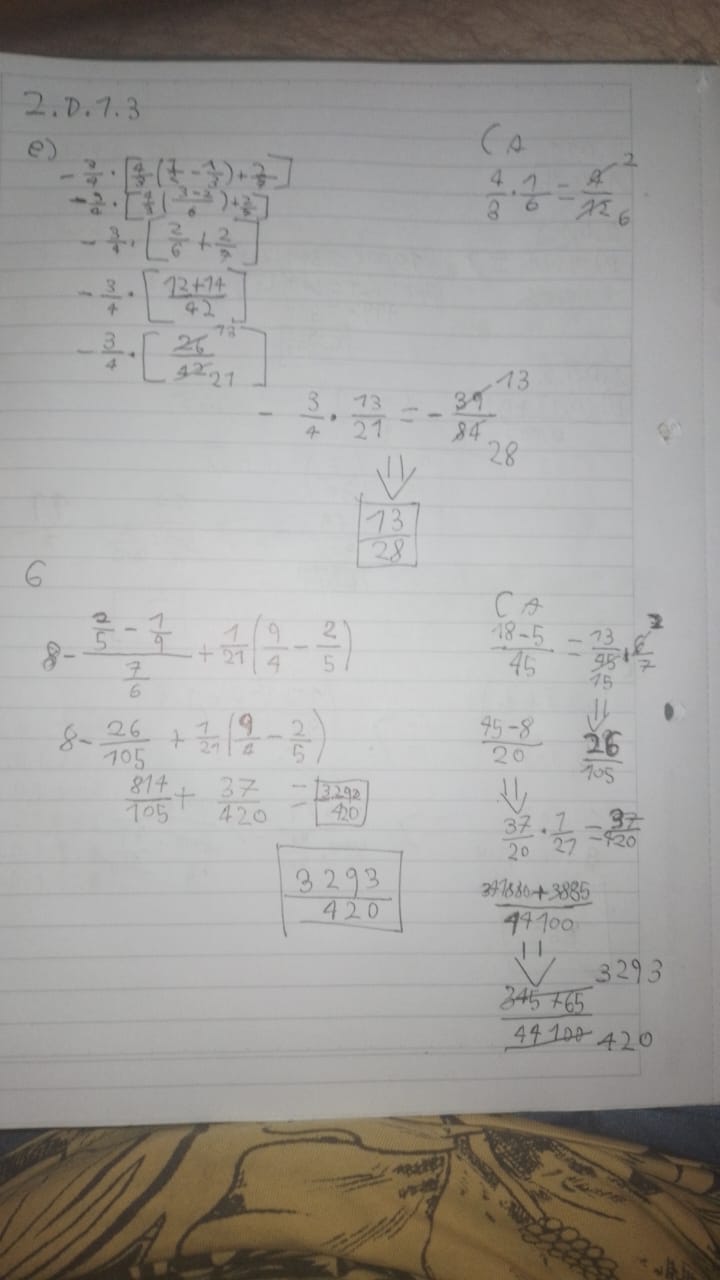 2.D.1.3
e)
- 3/4 · [4/3 (1/2 - 1/3) + 2/]
3/4 · [4/3 (3-2/6) + 2/]
- 3/4 · [2/6 + 2/]
- 3/4 · [12+14/42]
- 3/4 · [26/42] 13 21
- 3/4 · 13/21 = - 39/84 13 28
⇓
13/28
CA
4/3 · 1/6 = 4/12 2 6
6
8 - (2/5 - 1/9)/(7/6) + 1/21 (9/4 - 2/5)
8 - 26/105 + 1/21 (9/4 - 2/5)
814/105 + 37/420 = 3293/420
3293/420
CA
18-5/45 = 13/45 · 6/7 2 15
⇓
26/105
45-8/20
⇓
37/20 · 1/21 = 37/420
+3885/44100
⇓
345765/44100 3293 420